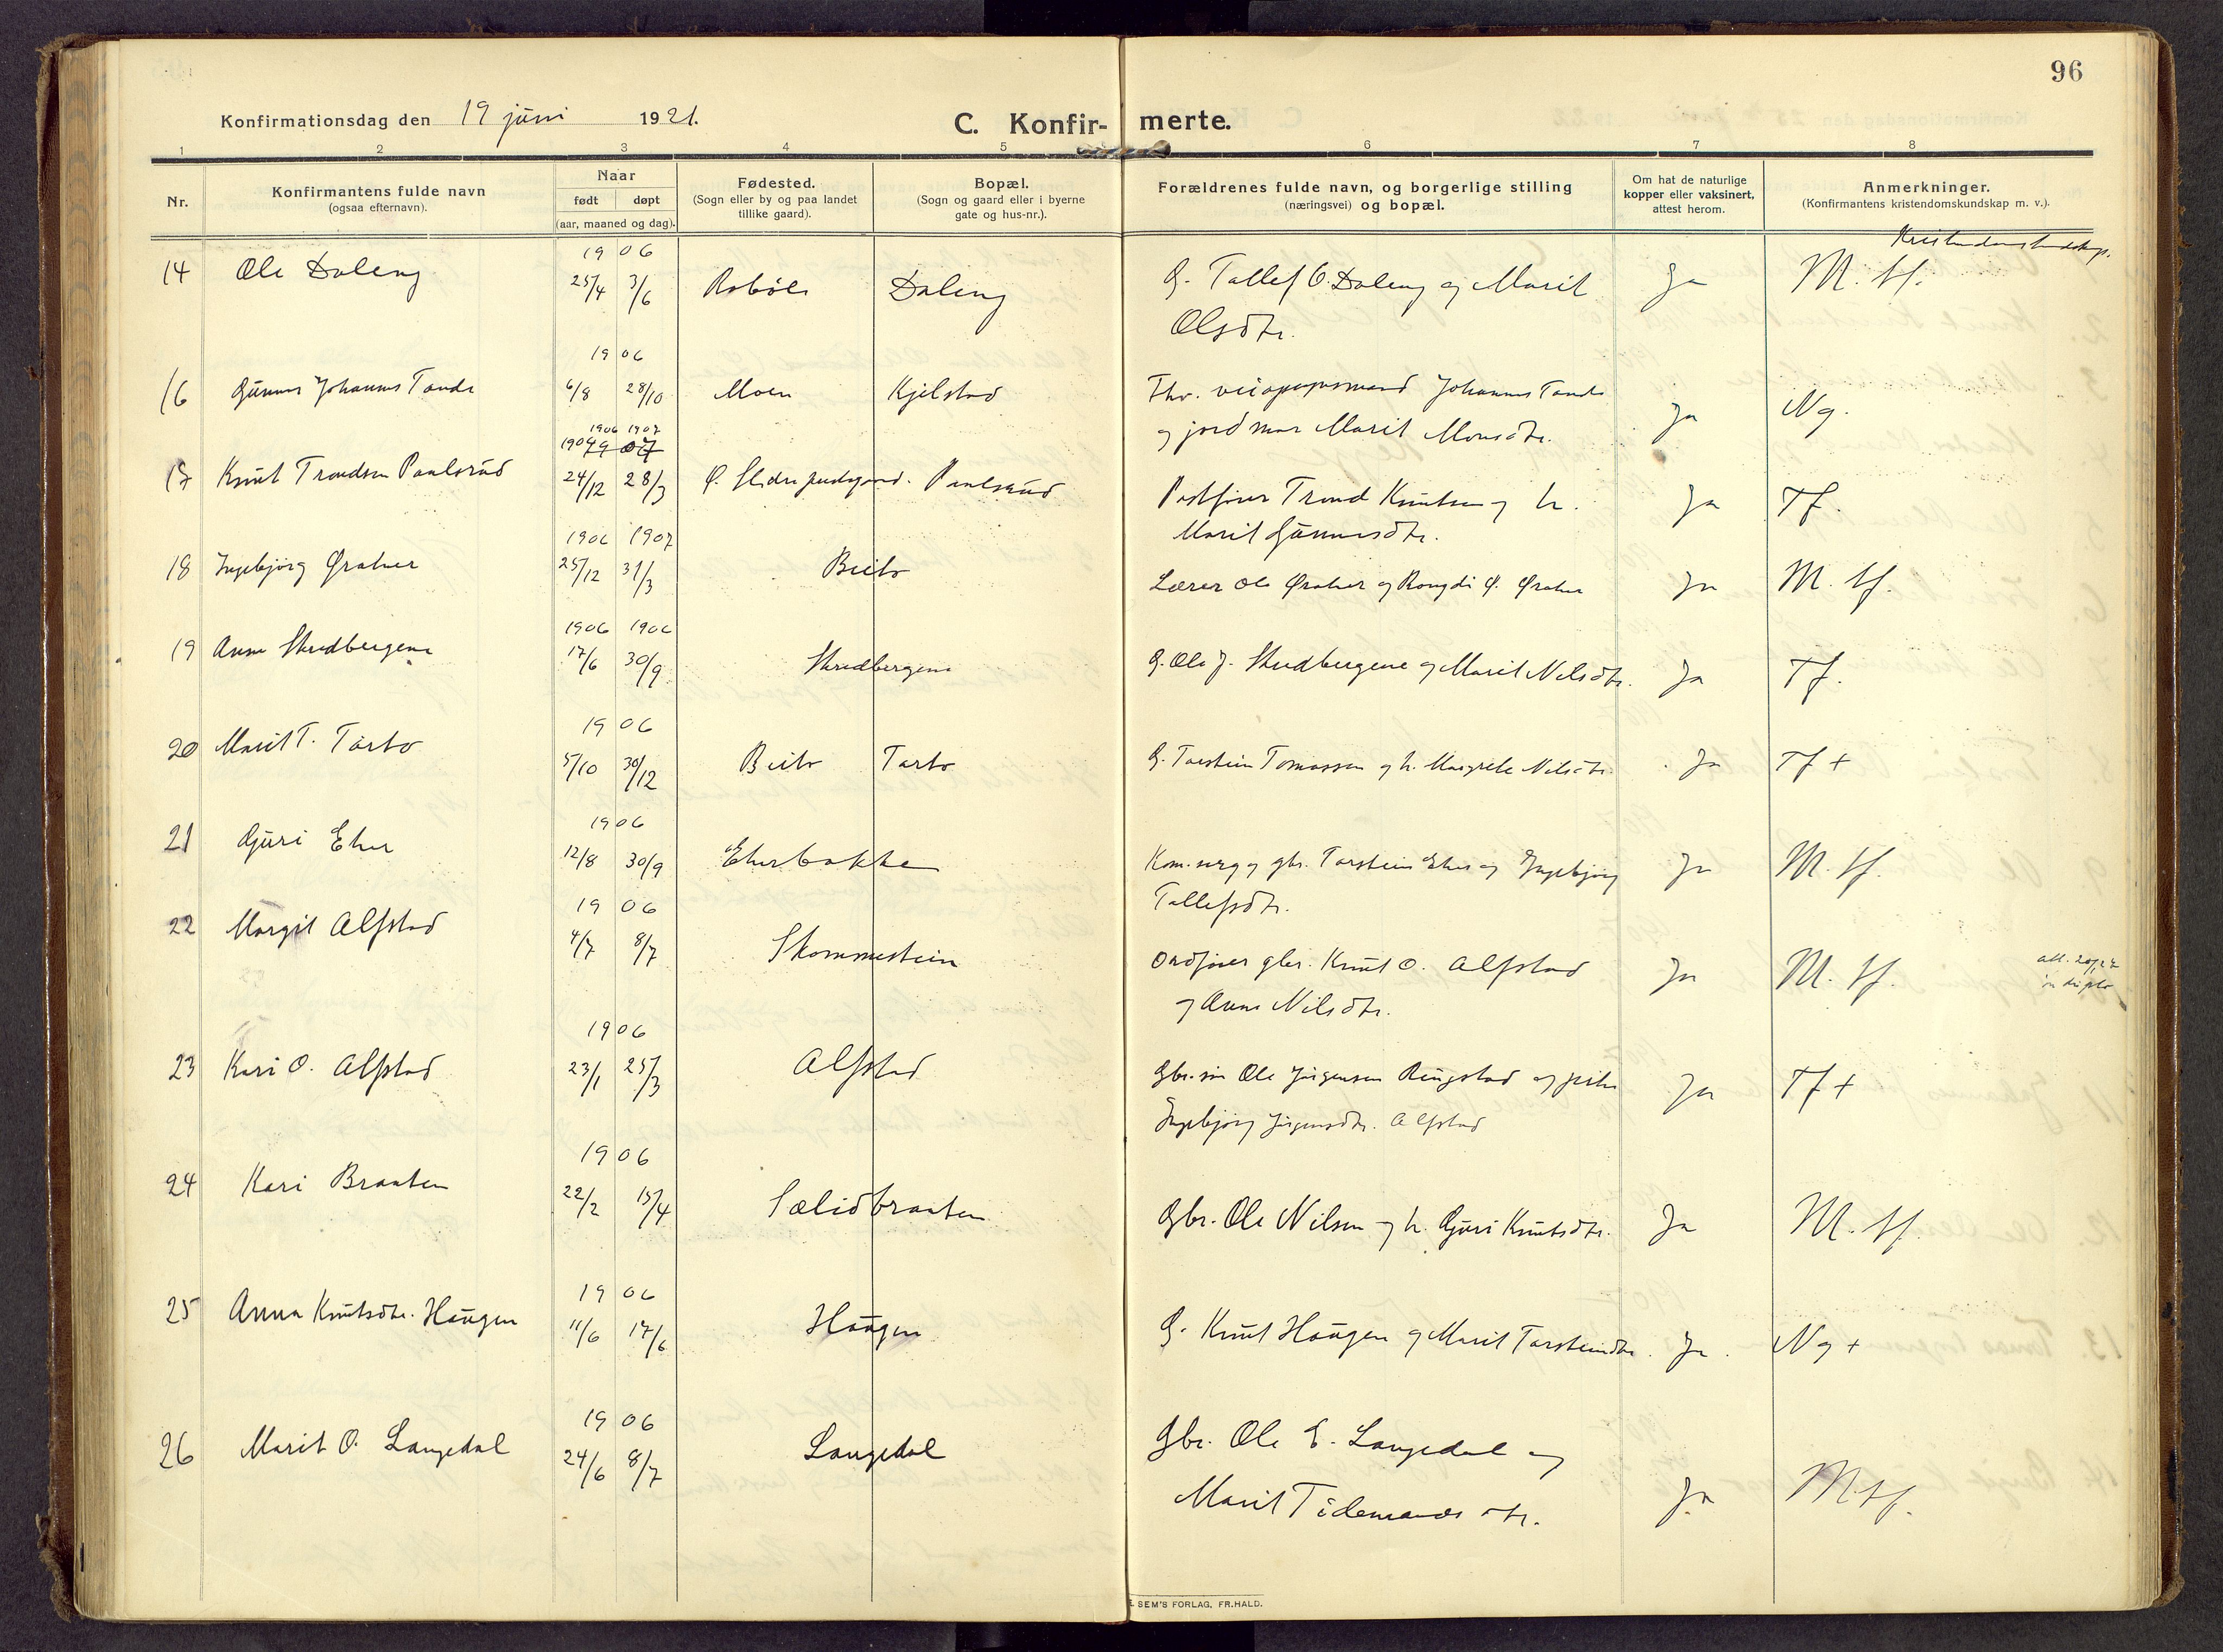 96
Konfirmationsdag den 19 juni 1921.
C. Konfir- merte.
1 2 3 4 5 6 7 8
Nr.
Konfirmantens fulde navn
(ogsaa efternavn).
Naar
født døpt
(aar, maaned og dag).
Fødested.
(Sogn eller by og paa landet
tillike gaard).
Bopæl.
(Sogn og gaard eller i byerne
gate og hus-nr.).
Forældrenes fulde navn, og borgerlige stilling
(næringsvei) og bopæl.
Om hat de naturlige
kopper eller vaksinert,
attest herom.
Anmerkninger.
(Konfirmantens kristendomskundskap m. v.).
Kristendomskundskap.
1906
14 Ole Daleng 25/4 3/6 Robøle Daleng G. Tollef O. Daleng og Marit Ja M. tf.
Olsdtr.
1906
16 Gunnar Johannes Tande 6/8 28/10 Moen Kjelstad Fhv. Johannes Tande Ja Ng.
og Marit Monsdtr.
1906 1907
17 Knut Trondsen Paulsrud 24/12 28/3 Ø. Slidre Paulsrud Trond Knutsen og h. Ja Tf.
Marit Gunnarsdtr.
1906 1907
18 Ingebjørg Øraker 25/12 31/3 Beito Lærer Ole Øraker og Rangdi Ø. Øraker Ja M. tf.
1906 1906
19 Anne Skredbergene 17/6 30/9 Skredbergene G. Ole J. Skredbergene og Marit Nilsdtr. Ja Tf.
1906
20 Marit T. Tørto 5/10 30/12 Beito Tørto G. Torstein Tomassen og h. Margrete Nilsdtr. Ja Tf +
1906
21 Guri Eker 12/8 30/9 Ekerbakke gbr. Torstein Eker og Ingebjørg Ja M. tf.
Tollefsdtr.
1906
22 Margit Alfstad 4/7 8/7 Skammestein Ordfører gbr. Knut O. Alfstad Ja M. tf.
og Anne Nilsdtr.
1906
23 Kari O. Alfstad 23/1 25/3 Alfstad Gbr. søn Ole Jørgensen Ringstad og pike Ja Tf +
Ingebjørg Jørgensdtr. Alfstad
1906
24 Kari Braaten 22/2 15/4 Sælidbraaten Gbr. Ole Nilsen og h. Guri Knutsdtr. Ja M. tf.
1906
25 Anna Knutsdtr. Haugen 11/6 17/6 Haugen G. Knut Haugen og Marit Torsteinsdtr. Ja. Ng +
1906
26 Marit O. Langedal 24/6 8/7 Langedal Gbr. Ole E. Langedal og
Marit Tidemandsdtr. Ja M. tf.
SEM'S FORLAG, FR.HALD.